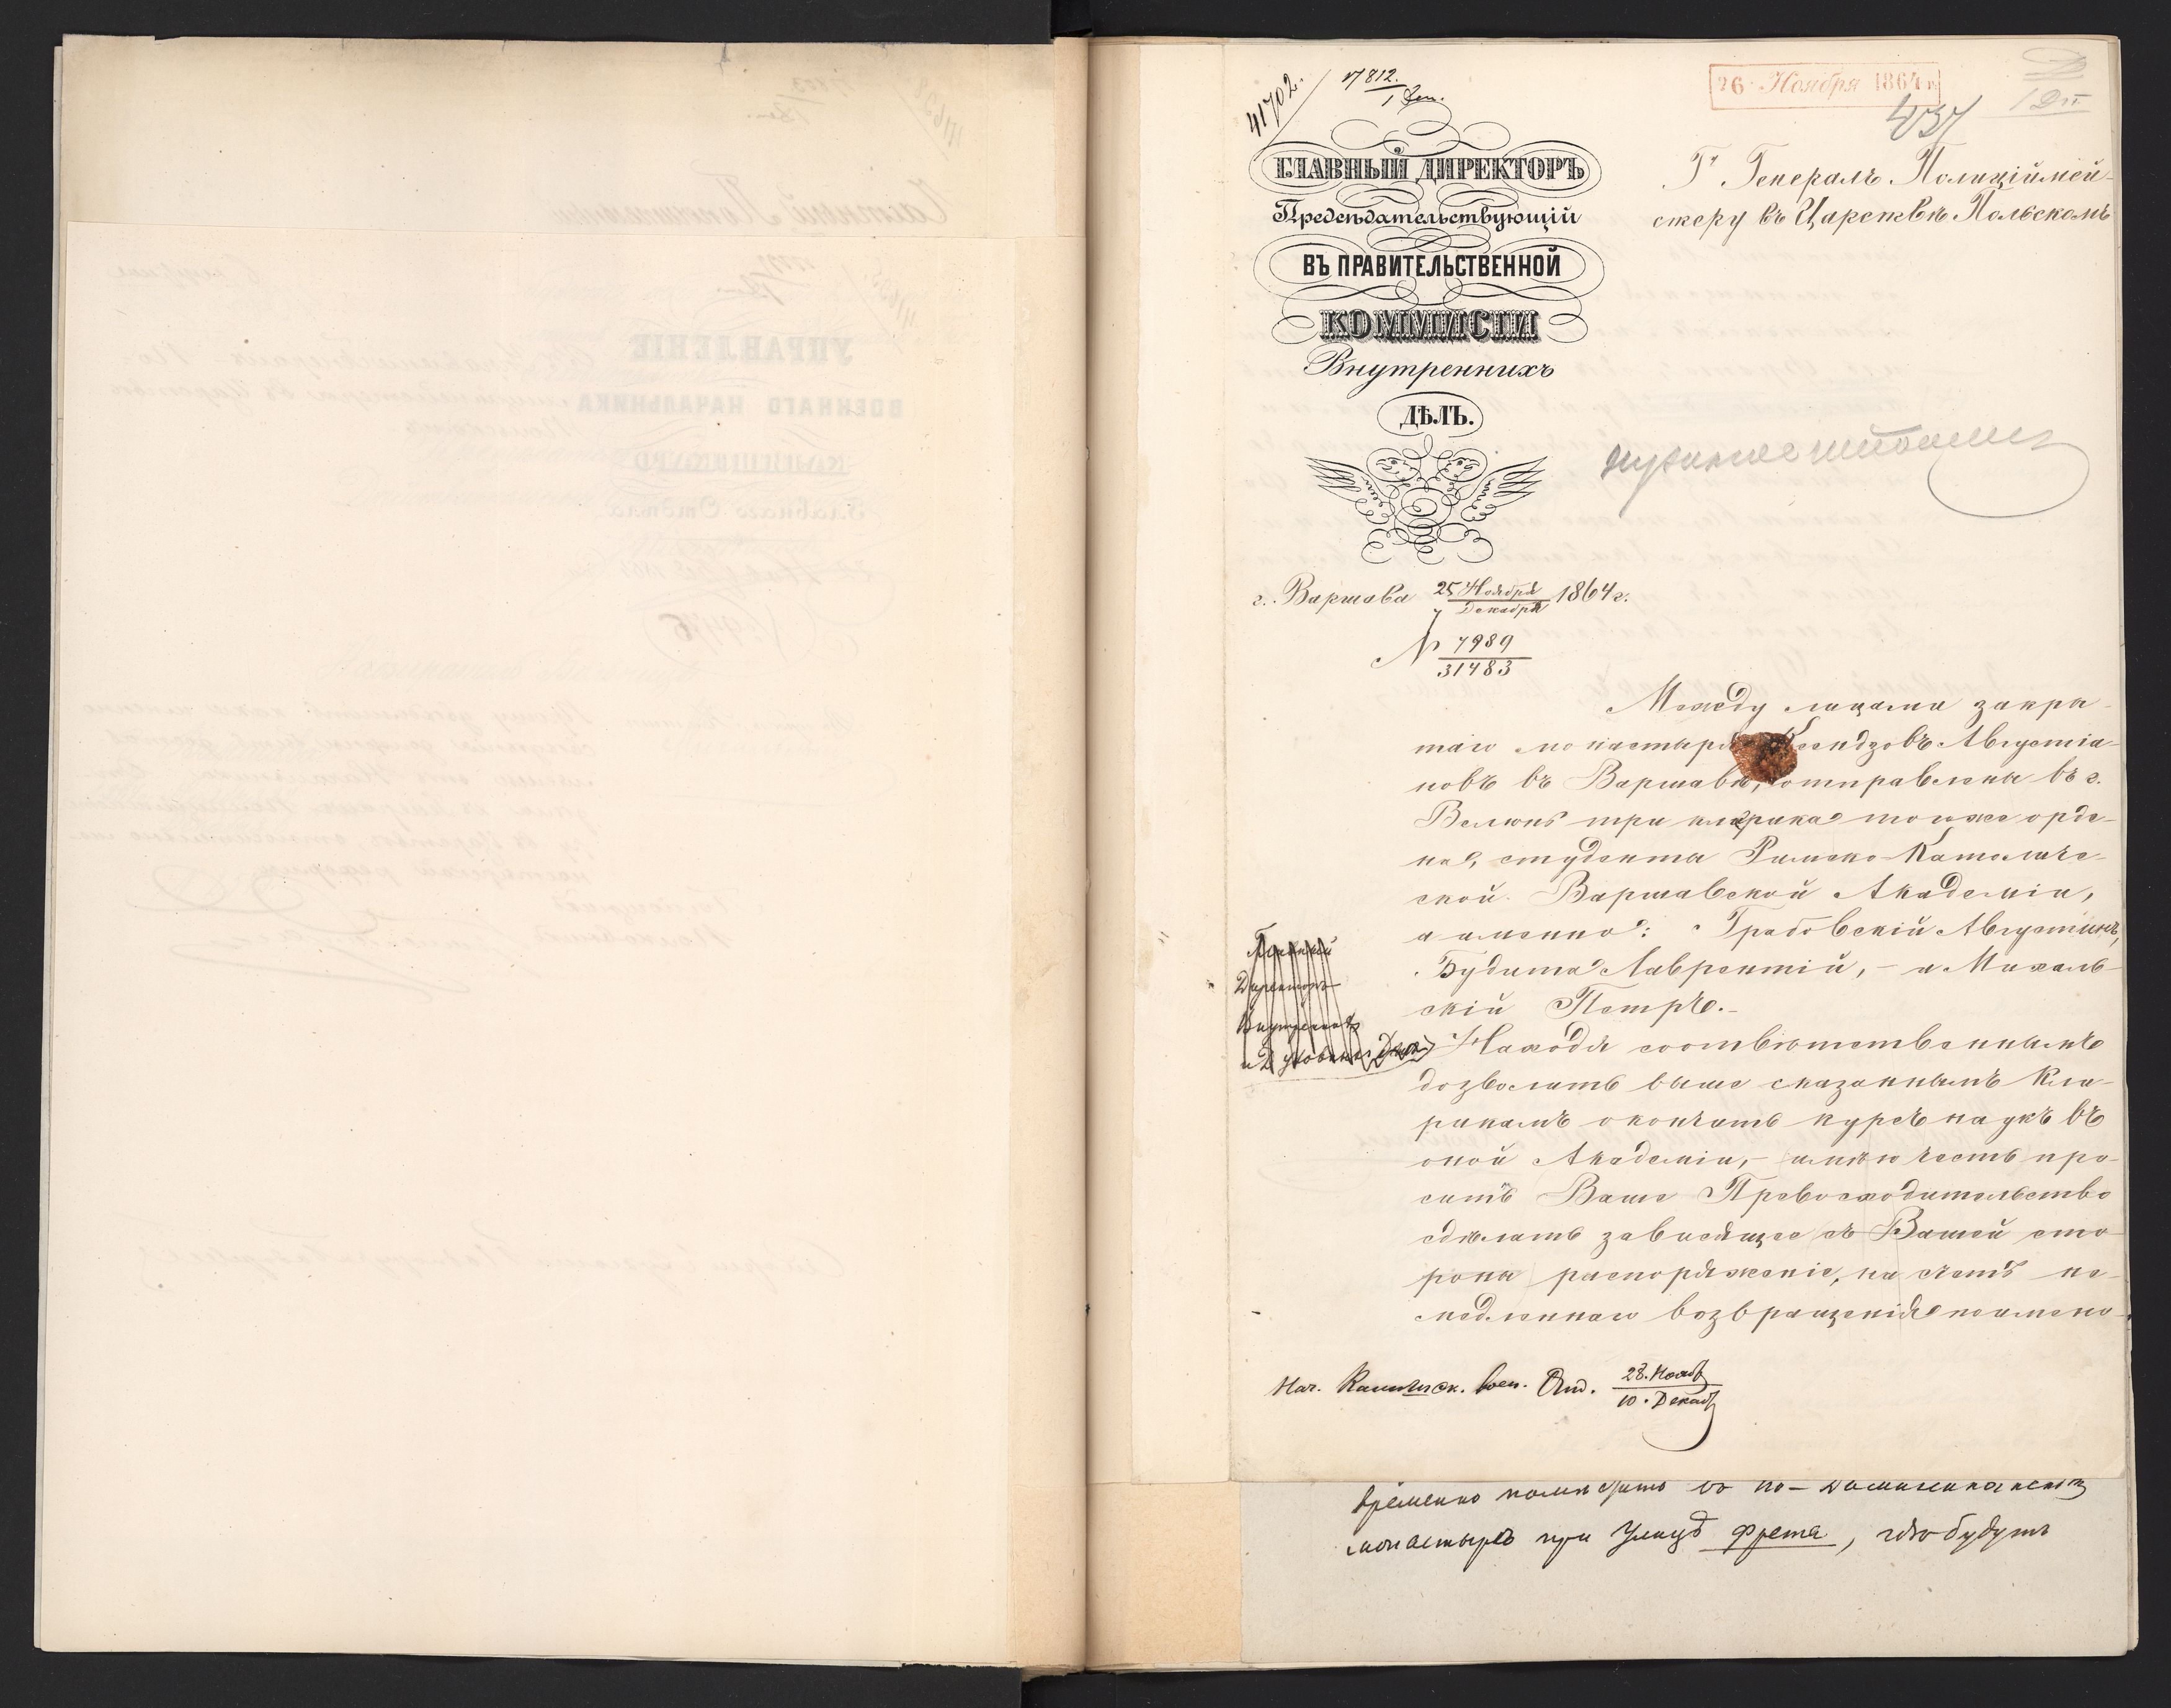 41702.
812.
1
26 Ноября 1864 г.
ГЛАВНЫЙ ДИРЕКТОРЪ
Предсѣдательствующій
ВЪ ПРАВИТЕЛЬСТВЕННОЙ
КОММИСІИ
Внутреннихъ
ДѢЛЪ.
Г. Генералъ Полиціймей-
стеру въ Царствѣ Польскомъ
г. Варшава 25 Ноября 1864 г.
7 Декабря
№ 7989
31483
Между лицами закры-
таго монастыря Ксендзовъ Августіа-
новъ въ Варшавѣ, отправлены въ г.
Велюнь три клерика тогоже орде-
на, студенты Римско-Католиче-
ской Варшавской Академіи,
а именно: Грабовскій Августинъ,
Будита Лаврентій, – и Михаль-
скій Петръ.–
Находя соотвѣтственнымъ
дозволить выше сказаннымъ Кле-
рикамъ окончить курсъ наукъ въ
оной Академіи,– имѣю честь про-
сить Ваше Превосходительство
сдѣлать зависящее съ Вашей сто-
роны распоряженіе, на счетъ не-
медленнаго возвращенія поимено-
Главный
Директоръ
Внутреннихъ
и Духовныхъ Дѣлъ
Нач. Калишск. Воен. Отд. 28. Нояб
10. Декаб
временно помѣстить въ по-Доминиканскомъ
монастырѣ при Улицѣ Фрета, гдѣ будутъ